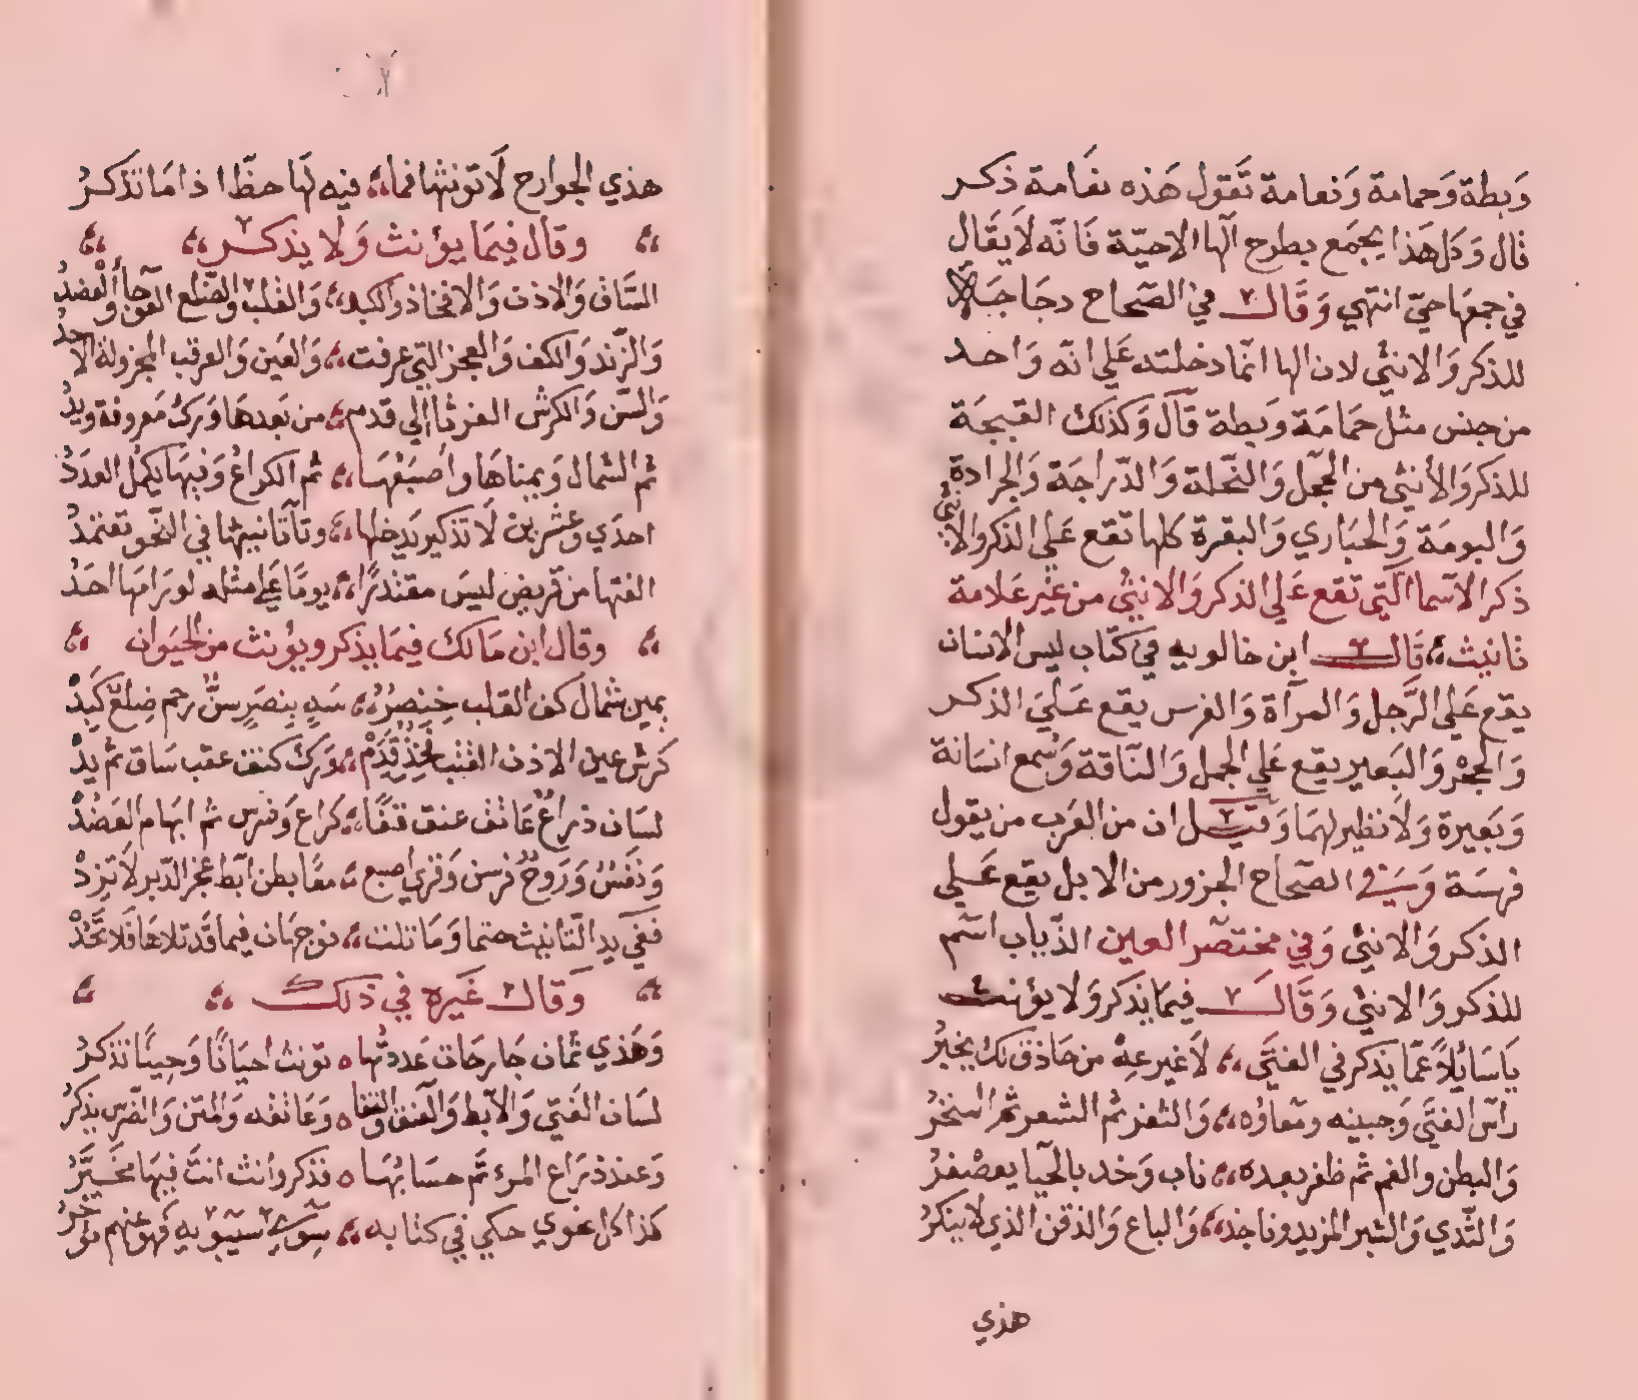 وَبطة وَحمامة وَنعامة تَقول هَذه نعَامة ذكر
قال وَكل هَذا يجمَع بطرح الها الاحيّة فَانّه لاَ يقَال
في جمعهَا حيّ انتهي وَقَال في الصّحاح دجَاجَة
للذكر وَالانثي لان الها انّما دخلته عَلي انّه وَاحد
من جنس مثل حَمَامَة وَبطة قَال وَكذلك القبجَة
للذكر وَالأنثي من الحجل وَالنّحلة وَالدّراجَة وَالجرادة
وَالبومَة وَالحبَاري وَالبقرة كلها تقع عَلي الذكر والانثي
ذكر الاسما الّتي تقع عَلي الذكر وَالانثي من غير عَلامة
تانيث قَال ابن خالويه في كتَاب ليس الانسان
يقع عَلي الرَّجل وَالمرأة وَالفرس يقع عَلي الذكر
وَالحجْر وَالبَعير يقع عَلي الجمل وَالنّاقة وَسُمع انسَانة
وَبَعيرة وَلاَ نظير لهمَا وَقيل ان من العَرب من يقول
فرسَة وَفي الصّحاح الجزور من الابل يقع عَلي
الذكر وَالانثي وَفي مختصر العين الذّباب اسم
للذكر وَالانثي وَقَال فيمَا يذكر وَلا يؤنث
يَا سَائِلاً عَمّا يذكر في الفتَي ،، لاَ غير عِهْ من حَاذق لك يخبرُ
رأس الفتَي وَجبينه ومعاؤه ،، وَالثغر ثم الشعر ثم المنخرُ
وَالبطن والفم ثم ظفر بعده ،، ناب وَخد بالحيا يعصْفرُ
وَالثّدي وَالشبر المزيد وناجذ ،، وَالباع وَالذقن الذي لا ينكرُ
هذي
هذي الجوارح لاَ تونثها فما ،، فيه لهَا حظّ اذا مَا تذكرُ
وقال فيمَا يؤنث وَلاَ يذكر
السَّاق وَالاذن وَالافخاذ والكبد ،، وَالقلب والضّلع العوجآ والعضدُ
وَالزّند وَالكف وَالعجز الّتي عرفت ،، وَالعَين وَالعرقب المجزولة الأحدُ
وَالسّن وَالكرش الغرثا إلي قدم ،، من بَعدهَا وَرك مَعروفة ويدُ
ثم الشمال وَيمناهَا واصبَعُهَا ،، ثم الكراعُ وَفيهَا يكمُل العدَدُ
احدَي وعشرين لاَ تذكير يَدخلها ،، وتا تانيثها في النّحو تعتمدُ
الفتها من قريض ليسَ مقتدرًا ،، يومًا عَلي مثله لو رَامهَا احَدُ
وقال ابن مَالك فيمَا يذكر ويؤنث من الحيَوان
يمين شمال كف القلب خِنصِرُ ،، سَهٍ بِنصَرٍ سنٌّ رحم ضِلَعٌ كَبِدْ
كرش عين الاذن القتب فَخِذٌ قَدَمْ ،، وَرك كتف عقب سَاق ثم يدْ
لسَان ذراعٌ عَاتق عنق قفًا ،، كراع وَضرس ثم ابهَام العَضُدْ
وَنفسٌ وَرَوحٌ فرسن وَقري اصبع ،، معًا بطن ابط عجز الدّبر لاَ تزدْ
فَفي يد التّانيث حتما وَمَا تلت ،، فوجهَان فيما قَد تلاهَا فَلا تَحُدْ
وَقال غَيره في ذلك
وَهَذي ثمان جَارحَات عَددتُّها ه تونث احيَانًا وَحِينًا تذكرُ
لسَان الفَتي وَالابط وَالعنق والقفا ه وَعَاتقه وَالمتن وَالضّرس يذكرُ
وَعند ذرَاع المرء تَمّ حسَابُهَا ه فذكر وأنث انتَ فيهَا مخَيَّرُ
كذا كل نحوي حكي في كتابه ،، سِوَي سيبَويه فَهو عنهم مؤخّرُ